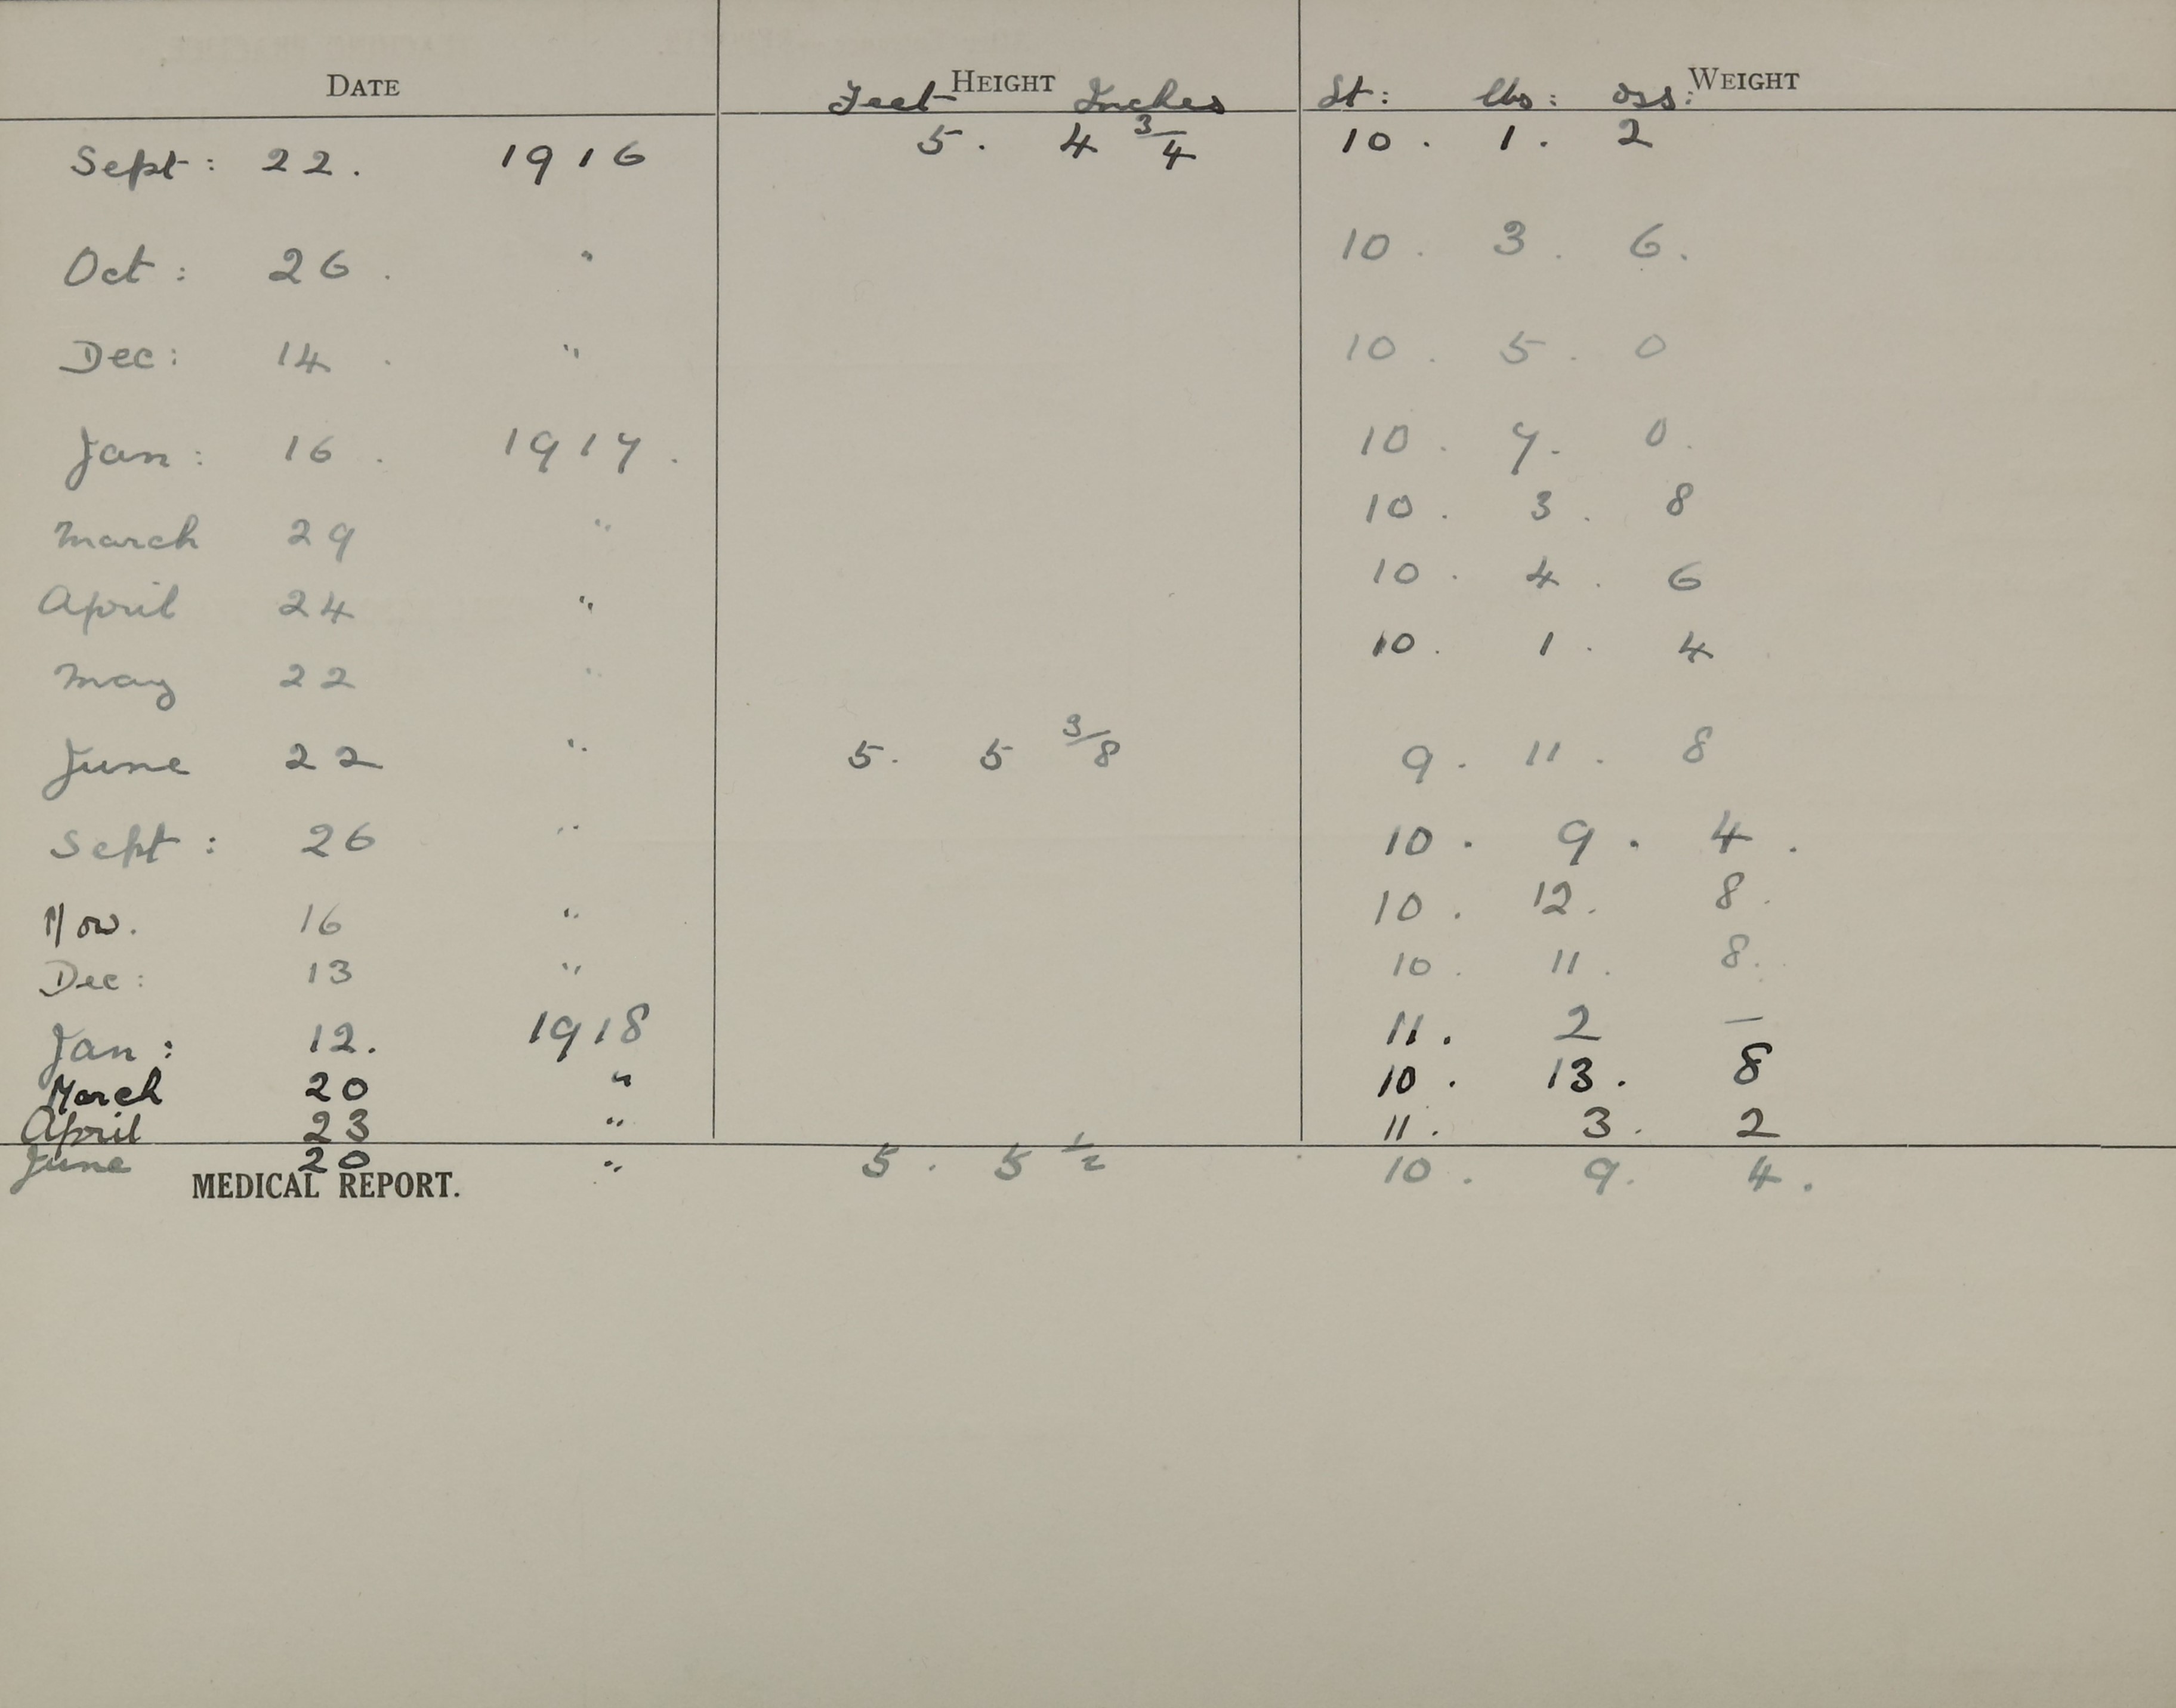 DATE HEIGHT WEIGHT
Feet Inches St: lbs: ozs:
Sept: 22. 1916 5. 4 3/4 10. 1. 2
Oct: 26. " 10. 3. 6.
Dec: 14. " 10. 5. 0
Jan: 16. 1917. 10. 7. 0.
March 29 " 10. 3. 8
April 24 " 10. 4. 6
May 22 " 10. 1. 4
June 22 " 5. 5 3/8 9. 11. 8
Sept: 26 " 10. 9. 4.
Nov. 16 " 10. 12. 8.
Dec: 13 " 10. 11. 8.
Jan: 12. 1918 11. 2 —
March 20 " 10. 13. 8
April 23 " 11. 3. 2
June 20 " 5. 5 1/2 10. 9. 4.
MEDICAL REPORT.